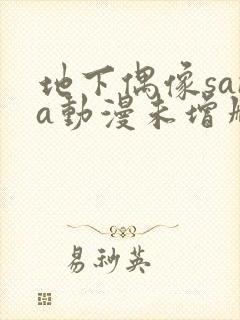 地下偶像sa
a動漫未增
易秒英